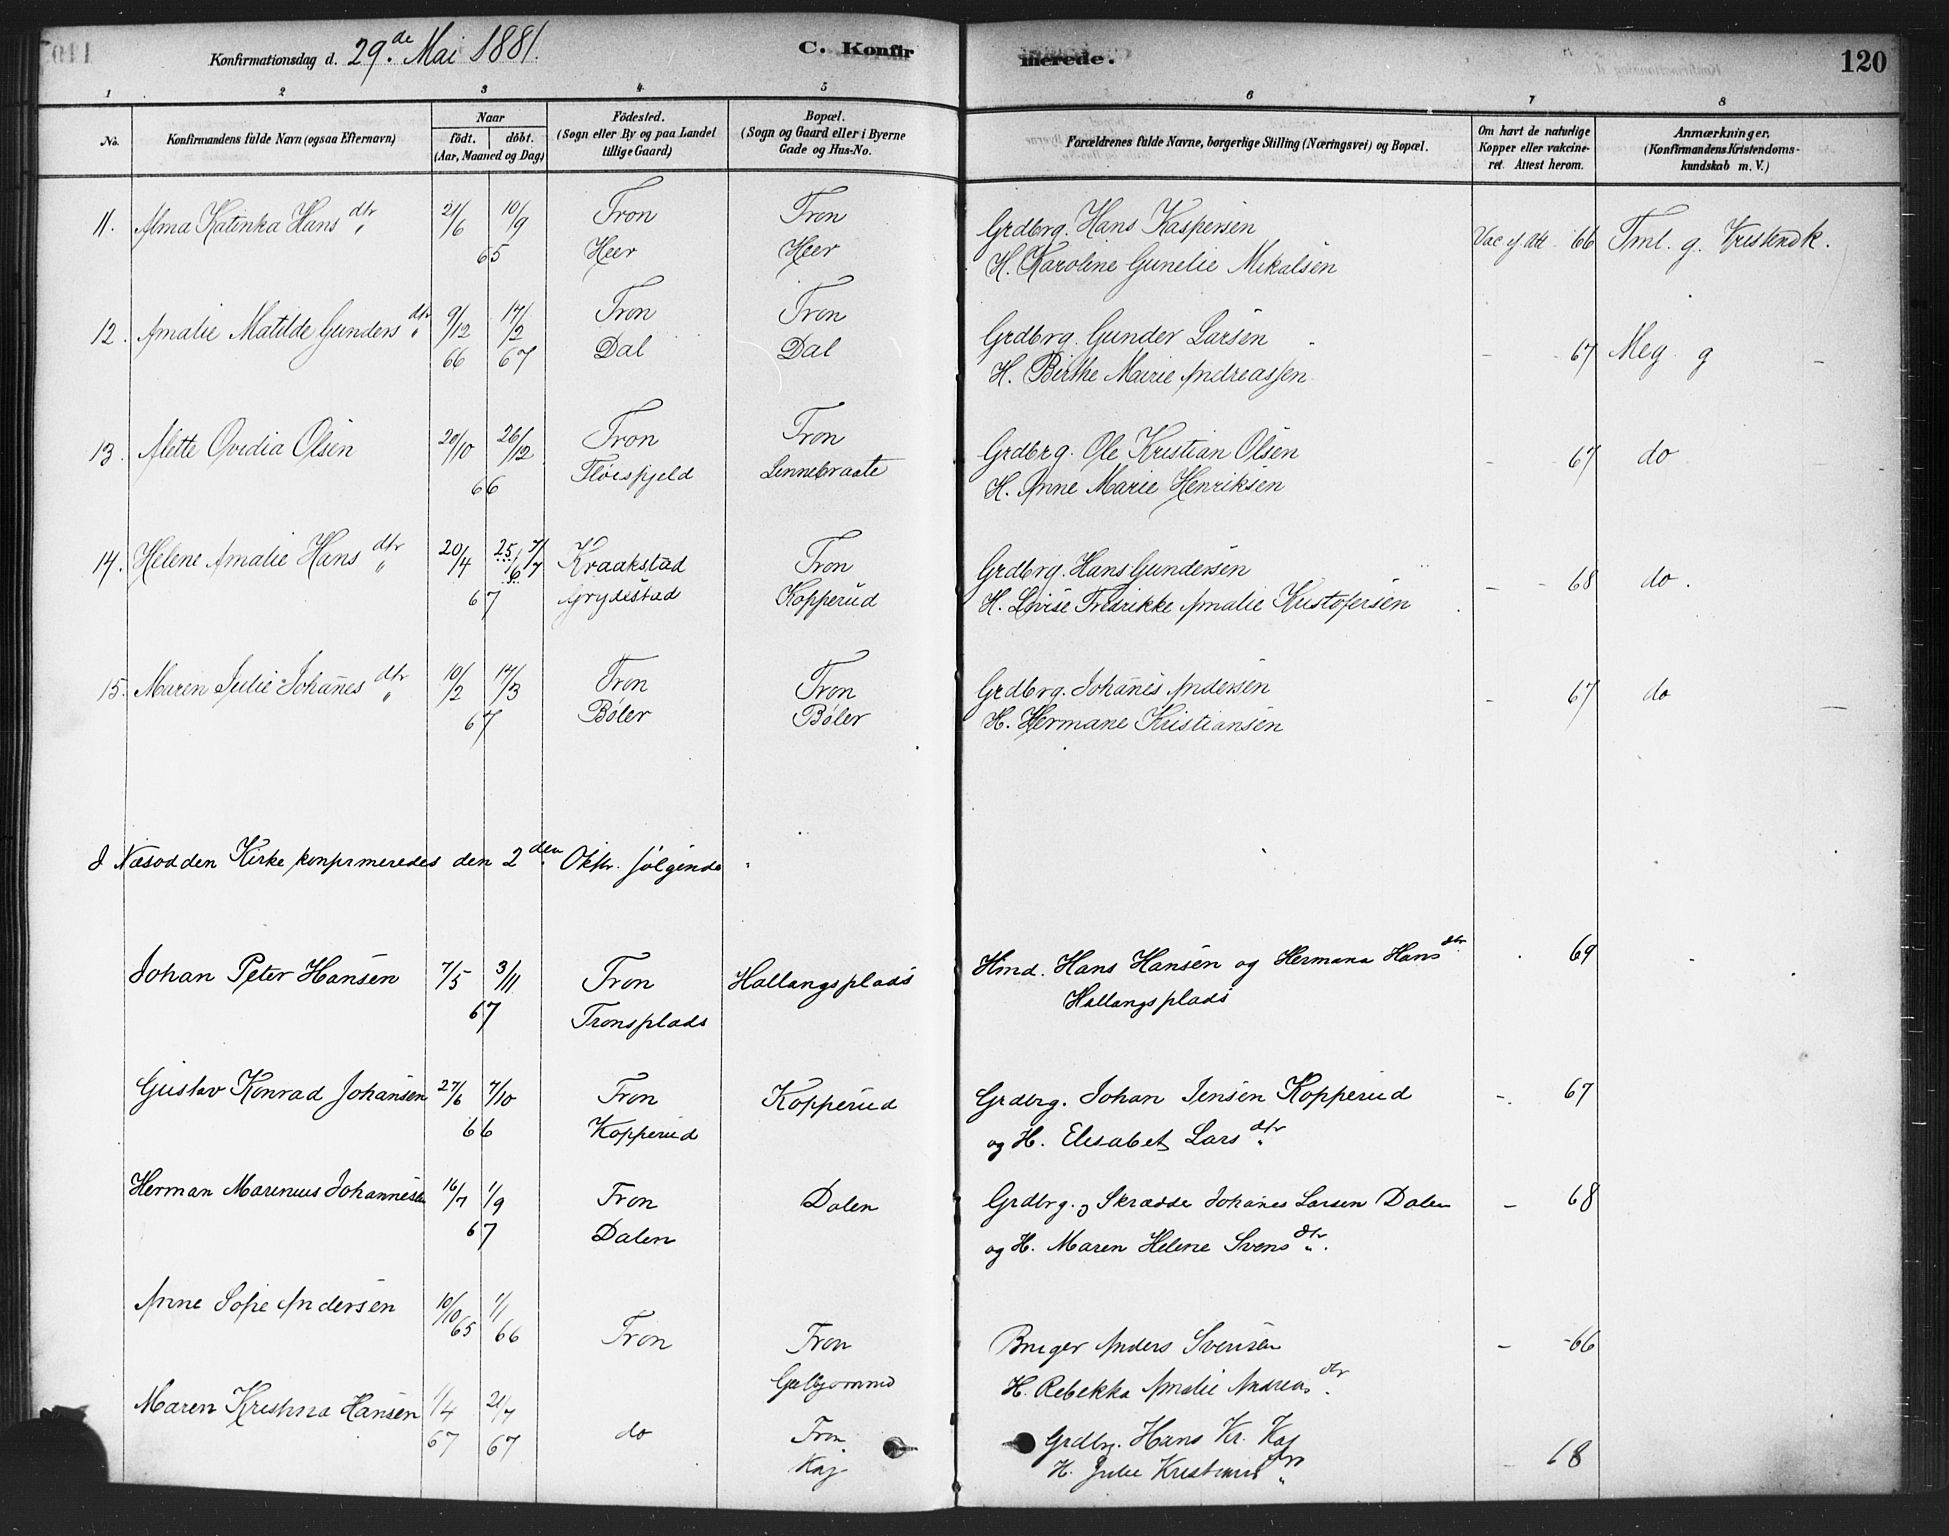 Konfirmationsdag d. 29.de Mai 1881.
C. Konfirmerede.
120
1 2 3 4 5 6 7 8
No.
Konfirmandens fulde Navn (ogsaa Efternavn)
Naar
født. døbt.
(Aar, Maaned og Dag)
Fødested.
(Sogn eller By og paa Landet
tillige Gaard)
Bopæl.
(Sogn og Gaard eller i Byerne
Gade og Hus-No.
Forældrenes fulde Navne, borgerlige Stilling (Næringsvei) og Bopæl.
Om havt de naturlige
Kopper eller vakcine-
ret. Attest herom.
Anmærkninger,
(Konfirmandens Kristendoms-
kundskab m. V.)
11. Alma Katinka Hansdtr 21/6 10/9 Fron Fron Grdbrg. Hans Kaspersen Vac ef Att 66 Tml. g. Kristendk.
65 Heer Heer H. Karoline Gunelie Mikalsen
12. Amalie Matilde Gundersdtr 9/12 17/2 Fron Fron Grdbrg. Gunder Larsen
66 67 Dal Dal H. Birthe Marie Andreassen - 67 Meg g -
13. Alette Ovidia Olsen 20/10 26/12 Fron Fron Grdbrg. Ole Kristian Olsen - 67 do
66 Fløispjeld Linnebraate H. Anne Marie Henriksen
14. Helene Amalie Hansdtr 20/4 25/6 7/7 Kraakstad Fron Grdbrg. Hans Gundersen - - 68 do.
67 Grydestad Kopperud H. Lovise Fredrikke Amalie Kristofersen
15. Maren Julie Johanesdtr 10/2 17/3 Fron Fron Grdbrg. Johanes Andersen - 67 do
67 Bøler Bøler H. Hermane Kristiansen
I Næsodden Kirke konfirmeredes den 2den Oktbr. følgende
Johan Peter Hansen 7/5 3/11 Fron Hallangsplads Hmd. Hans Hansen og Hermana Hansdtr 69
67 Fronsplads Hallangsplads
Gustav Konrad Johansen 27/6 7/10 Fron Kopperud Grdbrg. Johan Jensen Kopperud - 67
66 Kopperud og H. Elisabet Larsdtr
Herman Marinius Johannesen 16/7 1/9 Fron Dalen Grdbrg. og Skrædder Johanes Larsen Dalen - 68
67 Dalen og H. Maren Helene Svensdtr.
Anne Sofie Andersen 10/10 65 1/1 66 Fron Fron Bruger Anders Svensen - -66
H. Rebekka Amalie Andreasdtr.
Maren Kristina Hansen 1/4 21/7 do Fron Grdbrg. Hans Kr. Kaj
67 67 Kaj H. Julie Kristiansdtr 68